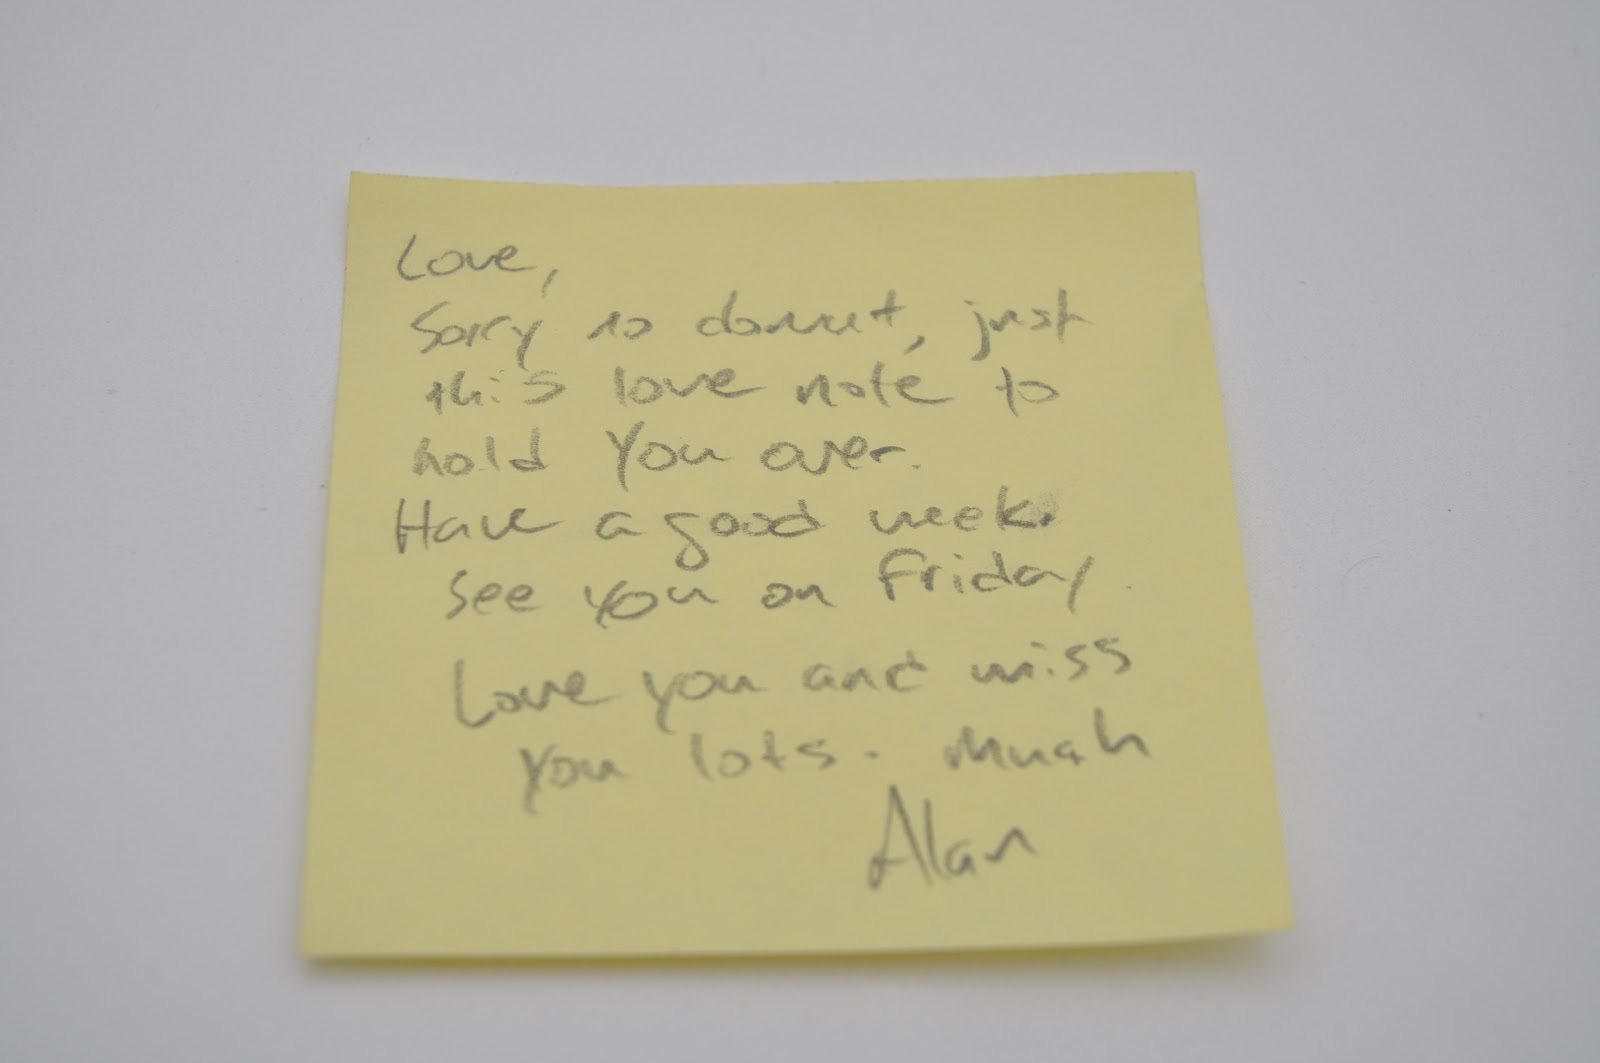 Love,
Sorry no donut, just
this love note to
hold you over.
Have a good week.
See you on Friday.
Love you and miss
you lots. Muah
Alan